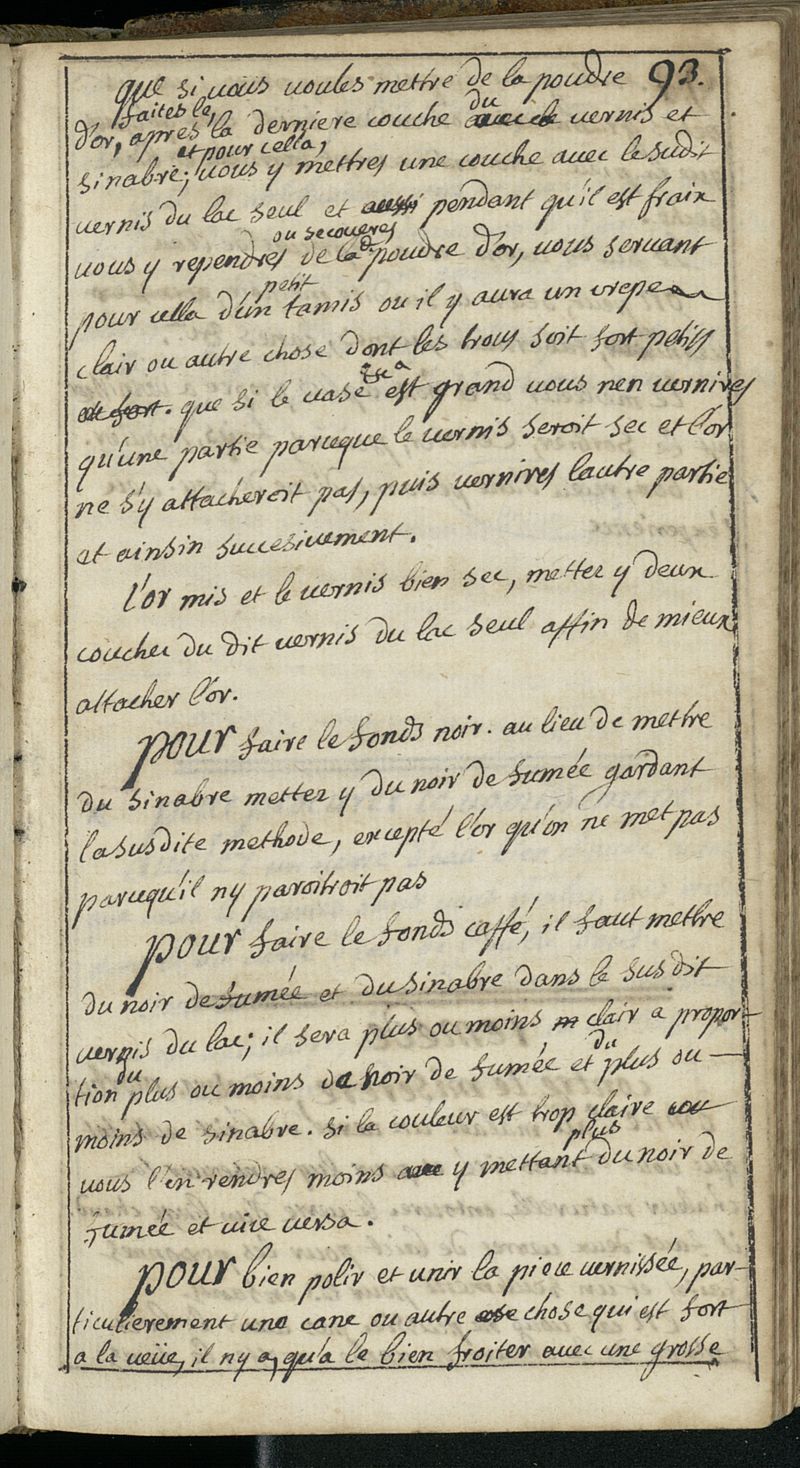 93.
que si vous voules mettre de la poudre
faites le,
d'or, apres la derniere couche du vernis et
et pour cella,
sinabre; vous y mettres une couche avec le sudit
vernis du lac seul et aussi pendant qu'il est fraix
ou secoueres
vous y rependres de la poudre d'or, vous servant
petit
pour cella d'un tamis ou il y aura un crepe
clair ou autre chose dont les trous soit fort petits
et fort. que si le vase est grand vous nen vernires
qu'une partie parceque le vernis seroit sec et l'or
ne s'y attacheroit pas, puis vernires lautre partie
et ainsin succesivement.
l'or mis et le vernis bien sec, mettez y deux
couches du dit vernis du lac seul affin de mieux
attacher l'or.
pour faire le fonds noir. au lieu de mettre
du sinabre mettez y du noir de fumée gardant
la susdite methode, excepté l'or qu'on ne met pas
parcequ'il ny paroitroit pas
pour faire le fonds caffé, il faut mettre
du noir de fumée et du sinabre dans le susdit
vernis du lac; il sera plus ou moins clair a propor-
tion du plus ou moins de noir de fumée et du plus ou
moins de sinabre. si la couleur est trop claire
vous l'en rendres moins y mettant plus du noir de
fumée et vice versa.
pour bien polir et unir la piece vernissée, par-
ticulierement une cane ou autre chose qui est fort
a la veüe, il ny a, qu'a le bien froiter avec une grosse